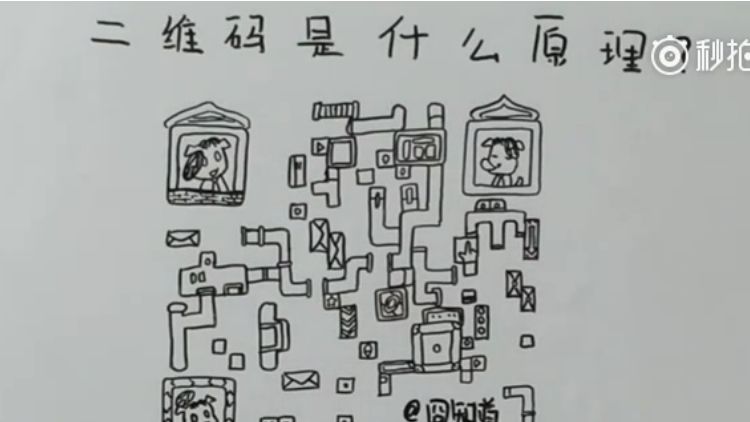 二维码是什么原理?
秒拍
@囧知道